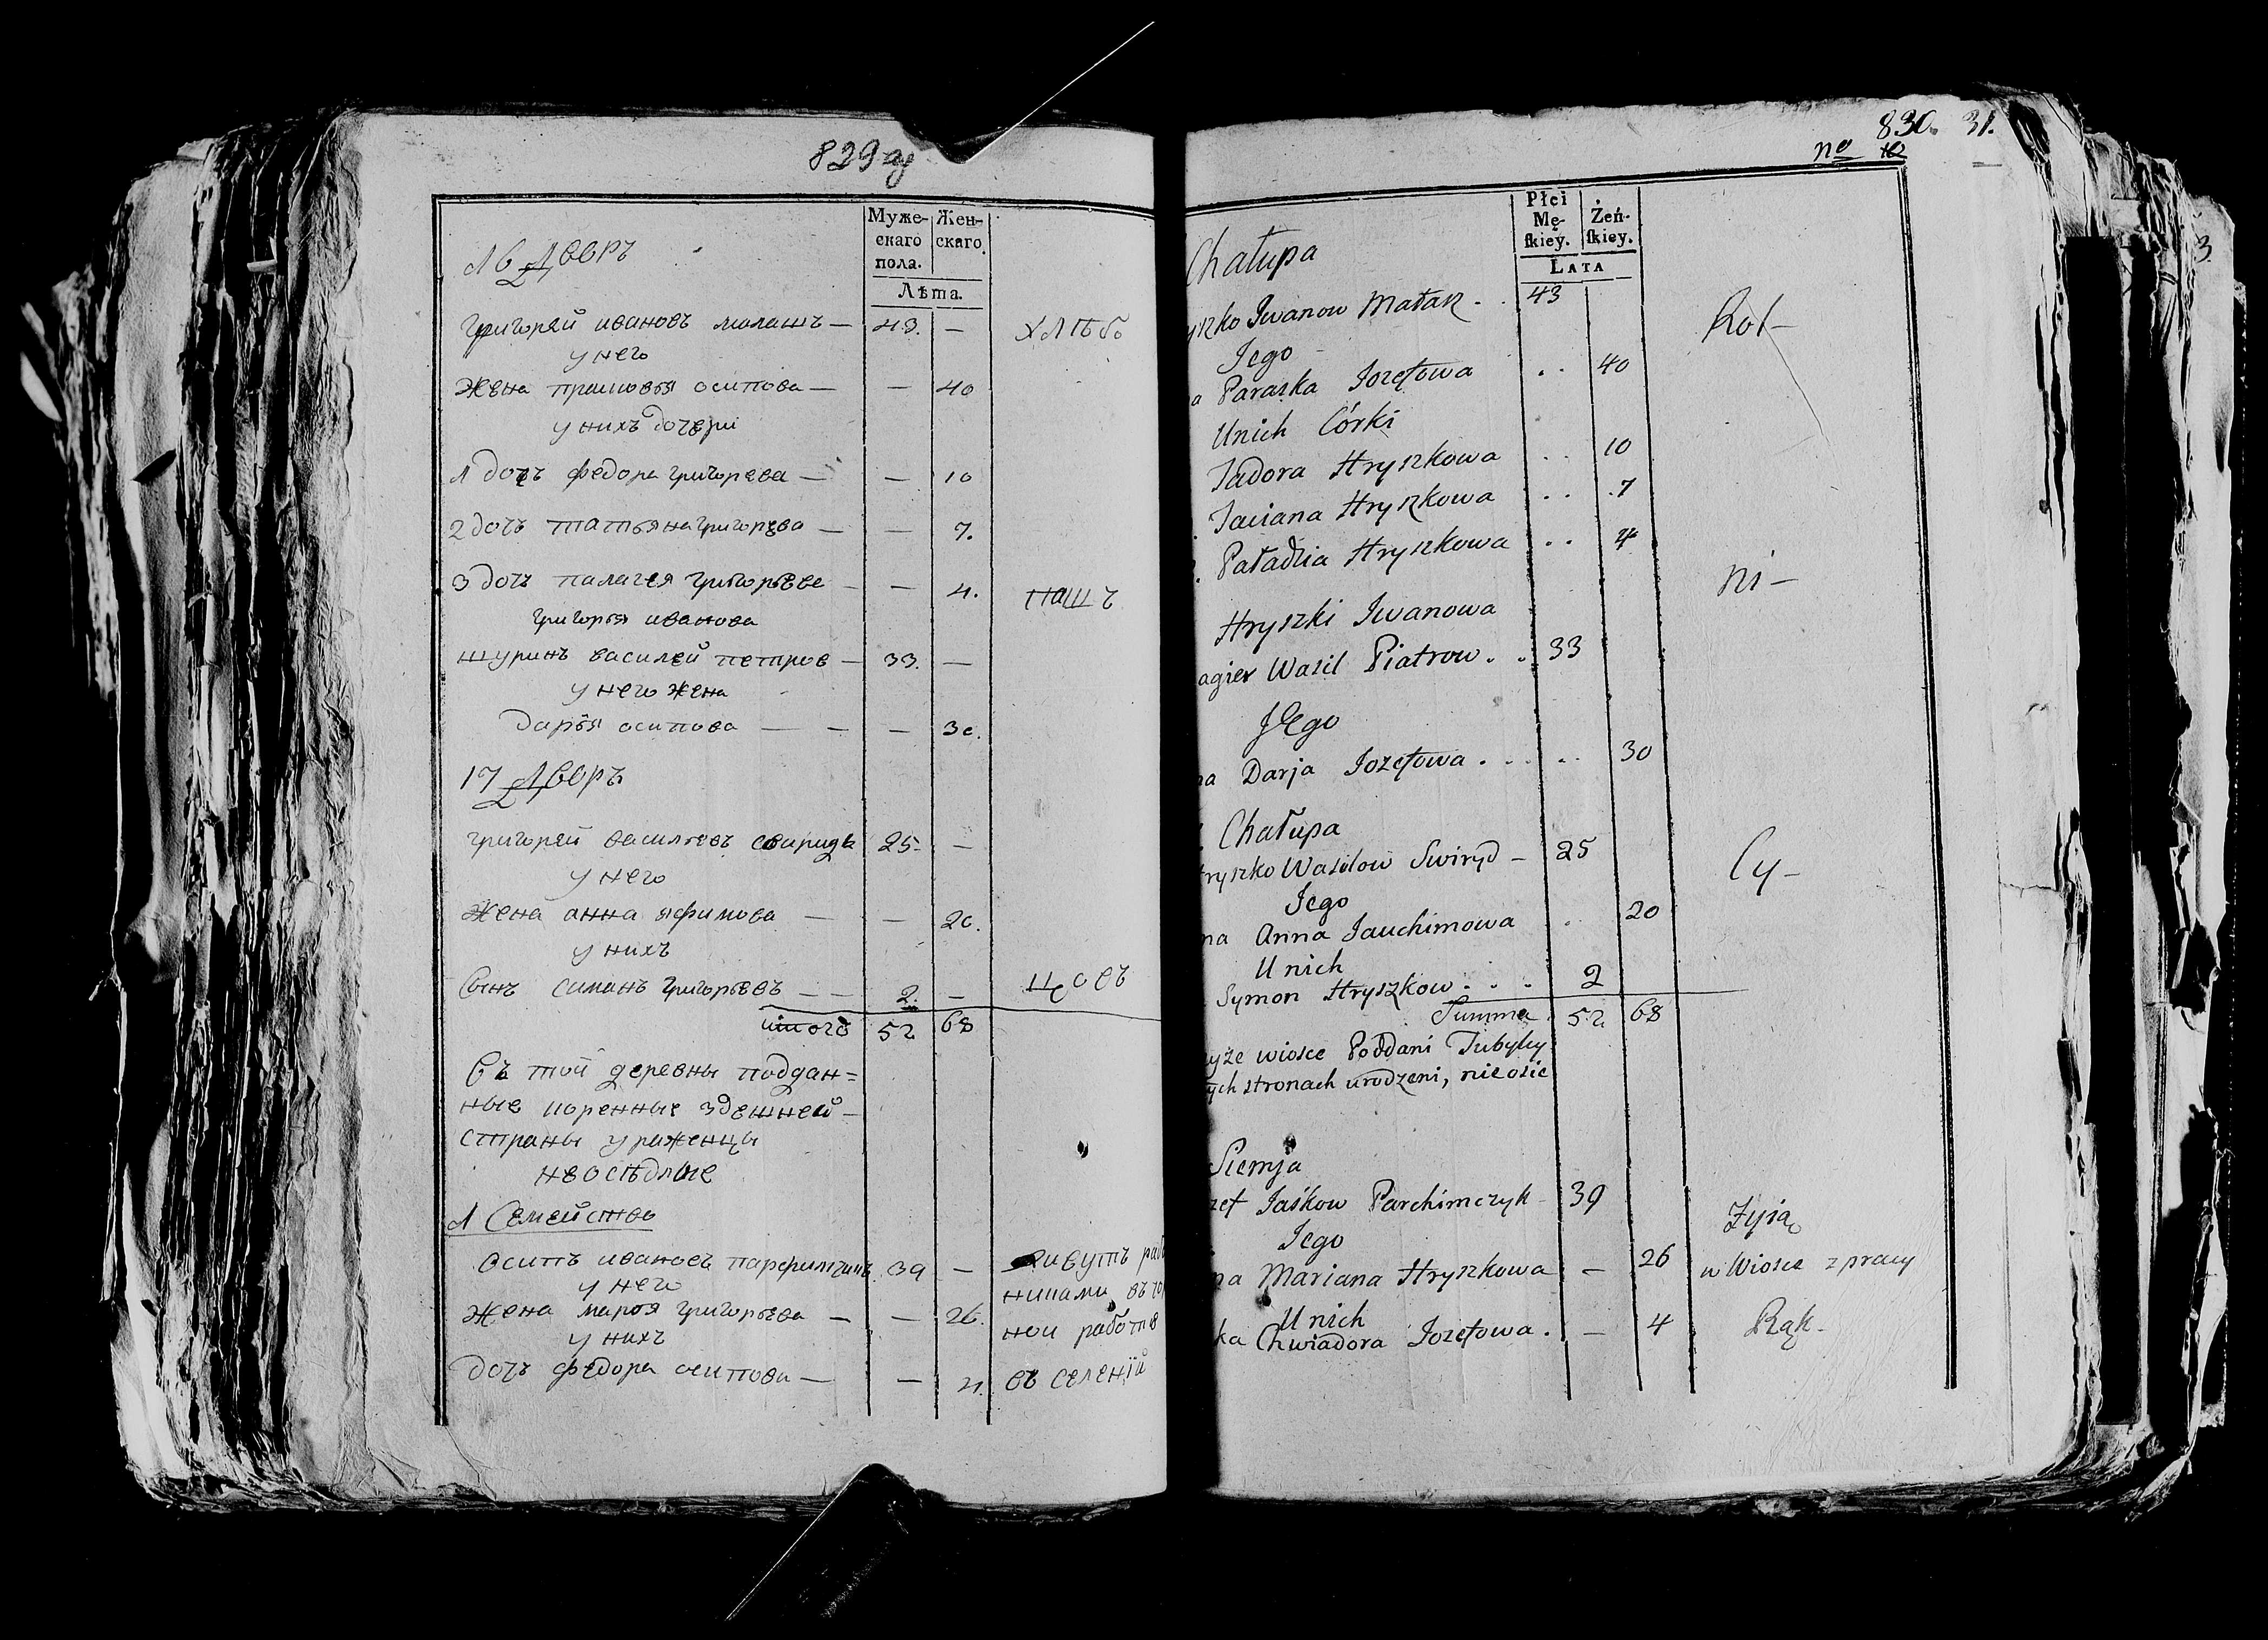 829
Муже- Жен-
скаго скаго
пола.
Лѣта.
16 Дворъ
Григорей ивановъ малашъ — 43. — хлѣбо
у него
Жена прасковья осипова — — 40
у нихъ дочери
1 дочь федора григорева — — 10
2 дочь татьяна григорева — — 7.
3 дочь палагея григорьева — — 4. пашъ
григорья иванова
шуринъ василей петров — 33. —
у него жена
дарья осипова — — — 30.
17 Дворъ
григорей васильевъ свирида 25. —
у него
Жена анна яфимова — — 20.
у нихъ
Сынъ симанъ григорьевъ — — 2. — цовъ
итого 52 68
Въ той деревни поддан=
ные коренные здешней
страны уроженцы
неоседлые
1 Семейство
Осипъ ивановъ парфимчикъ 39 — живутъ раб
у него никами въ
Жена марья григорьева — — 26. ной работы
у нихъ
дочь федора осипова — — 4. въ селеній
830. 31.
no
Płci
Mę- Żeń-
skiey. skiey.
LATA
Chałupa
yszko Iwanow Małaz . . 43 Rol-
Jego
a Paraska Jozefowa . . 40
Unich Córki
Jadora Hryszkowa . . 10
Taciana Hryszkowa . . 7
Paładzia Hryszkowa . . 4
ni-
Hryszki Iwanowa
agier Wasil Piatrow . . 33
Jego
na Darja Jozefowa . . . . . 30
Chałupa
ryszko Wasilow Swiryd - 25 Cy-
Jego
na Anna Jauchimowa . 20
Unich
Symon Hryszkow . . . 2
Summa 52 68
yże wiosce Poddani Tubylcy
ych stronach urodzeni, nieosie
Siemja
zef Jaśkow Parchimczyk - 39 Żyią
Jego
na Mariana Hryszkowa — 26 w Wiosce z pracy
Unich
ka Chwiadora Jozefowa . — 4 Rąk-